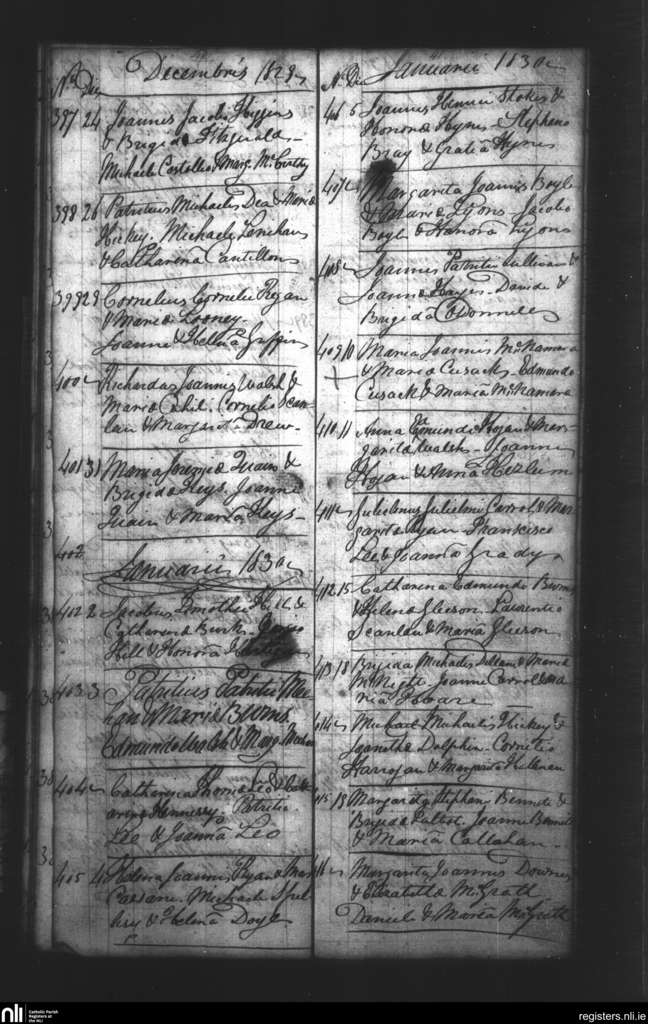 No. Die
Decembris 1829
397 24 Joannes Jacobi Higgins
& Brigida Fitzgerald
Michaele Costelloe & Marg. McCarthy
398 26 Patritius Michaelis Dea & Maria
Hickey. Michaele Lenihan
& Catharina Cantillon
399 29 Cornelius Cornelii Regan
& Maria Looney.
Joanne & Helena Griffin
400 Richardus Joannis Walsh &
Maria Cahil. Cornelio Scan-
lan & Margarita Drew
401 31 Maria &
Brigida Heys. Joanne
& Maria Heys
402
Januarii 1830
402 2 Jacobus Timothei Hill &
Catharina Burke.
Hill & Honora
403 3 Patritius Patritii
& Maria Burns
Edmundo & Marg.
404 Catharina Thomae Leo & Cath-
arina Hennessy. Patritio
Leo & Joanna Leo
405 4 Helena Joannis Ryan & Mar
Michaele
& Helena Doyle
No. Die
Januarii 1830
406 5 Joannes Henrici Stokes &
Honora Hynes. Stephano
Bray & Gratia Hynes
407 Margarita Joannis Boyle
& Maria Lyons. Jacobo
Boyle & Honora Lyons
408 Joannes Patritii Sullivan &
Joanna Hayes. Davide &
Brigida O Donnell
409 10 Maria Joannis McNamara
& Maria Cusack. Edmundo
Cusack & Maria McNamara
410 11 Anna Edmundi Hogan & Mar-
garita Walsh. Joanne
Hogan & Anna
411 Julielmus Julielmi Carrol & Mar
garita Ryan Francisco
Lee & Joanna Grady
412 15 Catharina Edmundi Burns
& Helena Gleeson. Laurentio
Scanlan & Maria Gleeson
413 18 Brigida Michaelis & Maria
McNight. Joanne Carrol & Ma
ria Hoare
414 Michael Michaelis Hickey &
Dolphin. Cornelio
Harrogan & Margarita
415 18 Margarita Stephani Bennett &
Brigida. Joanne Bennett
& Maria Callahan
416 Margarita Joannis Downes
& Elizabetha McGrath
Daniel & Maria McGrath
nli
Catholic Parish
Registers at
the NLI
registers.nli.ie